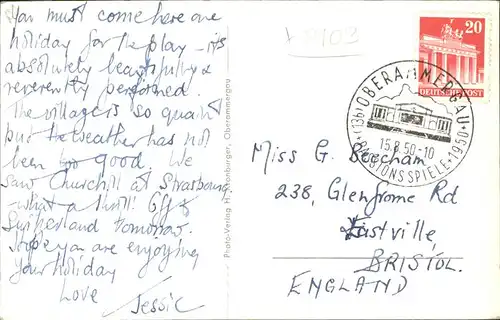 You must come here one
holiday for the play - its
absolutely beautifully &
reverently performed.
The village is so quaint
but the weather has not
been too good. We
saw Churchill at Strasbourg
- what a thrill! Off to
Switzerland tomorrow.
Hope you are enjoying
your holiday
Love
Jessie
Photo-Verlag H. Oberammergau
20
DEUTSCHE POST
(13b) OBERAMMERGAU
15.8.50-10
PASSIONSSPIELE 1950
Miss G. Beecham
238, Glenfrome Rd
Eastville,
BRISTOL.
ENGLAND